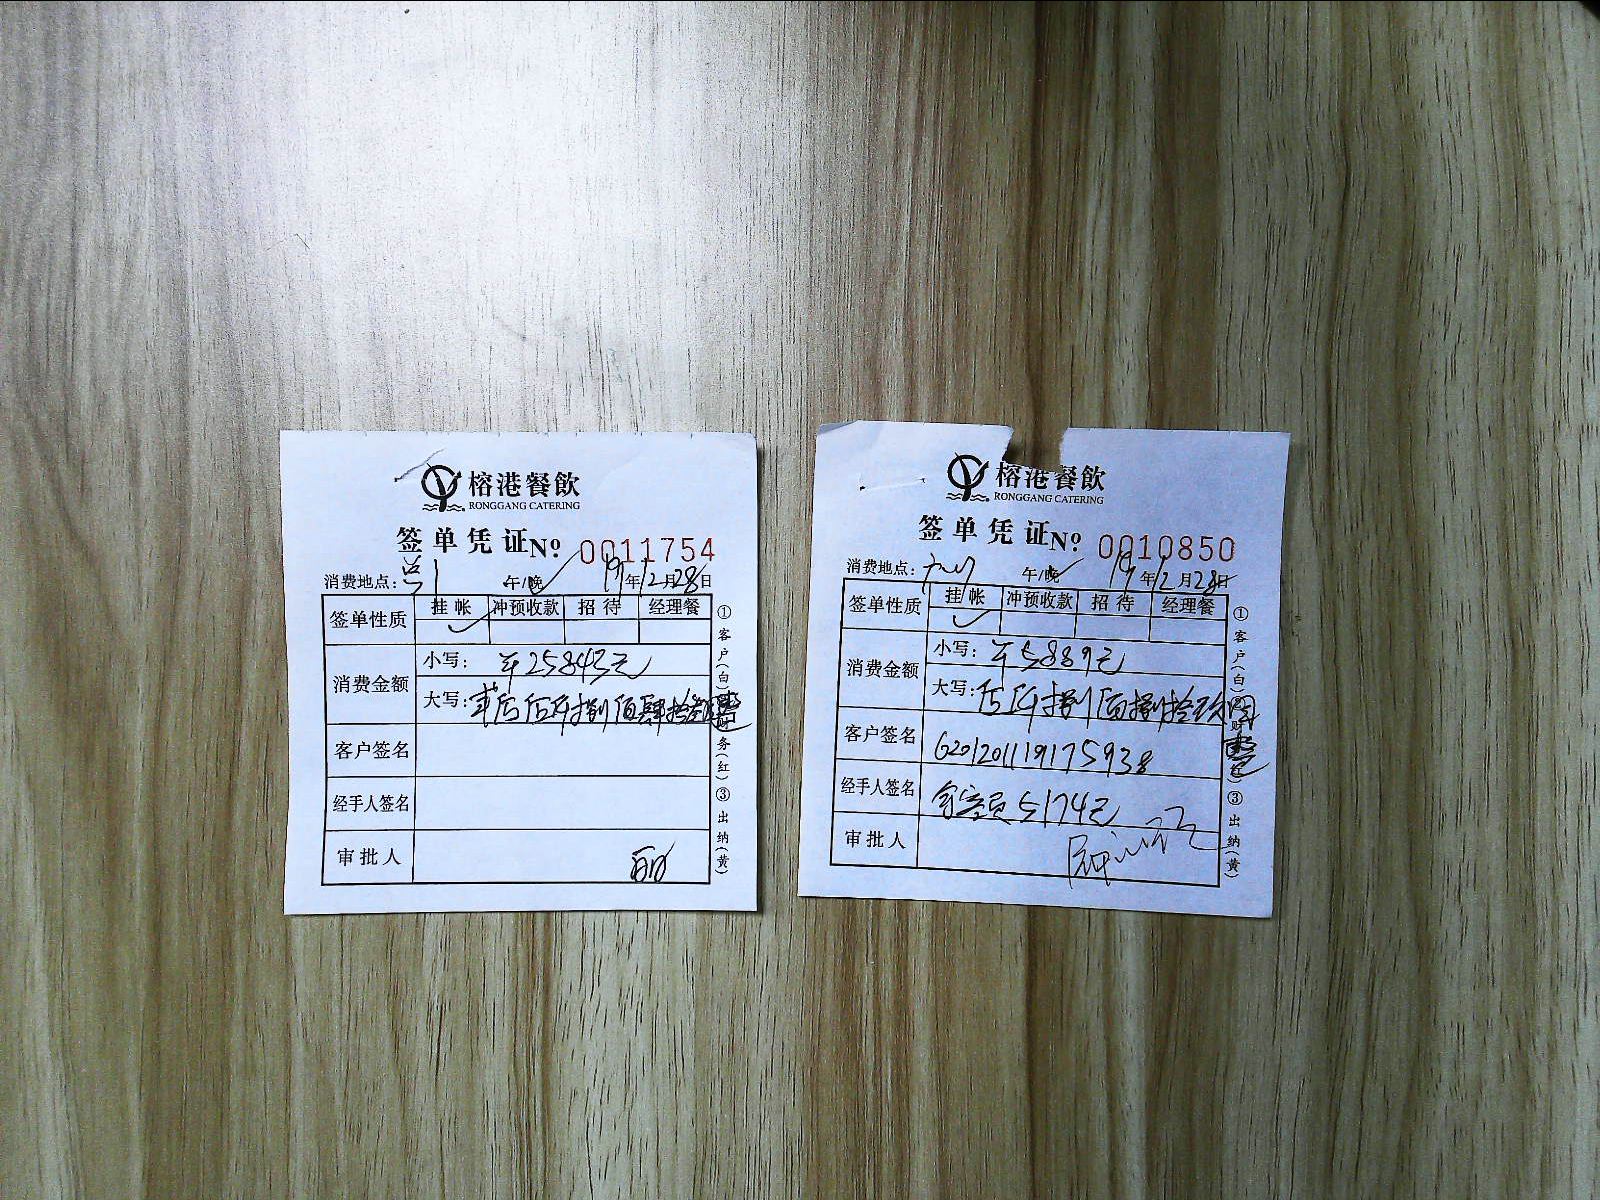 榕港餐飲
RONGGANG CATERING
签单凭证№ 0011754
消费地点： 午/晚 19年12月28日
签单性质 挂帐 冲预收款 招待 经理餐
消费金额 小写：¥25843元
大写：贰万伍仟捌佰肆拾叁圆整
客户签名
经手人签名
审批人
①客户(白) 务(红) ③出纳(黄)
榕港餐飲
RONGGANG CATERING
签单凭证№ 0010850
消费地点： 午/晚 19年12月28日
签单性质 挂帐 冲预收款 招待 经理餐
消费金额 小写：¥5889元
大写：伍仟捌佰捌拾玖圆整
客户签名 6201201119175938
经手人签名 5174元
审批人
①客户(白) ③出纳(黄)